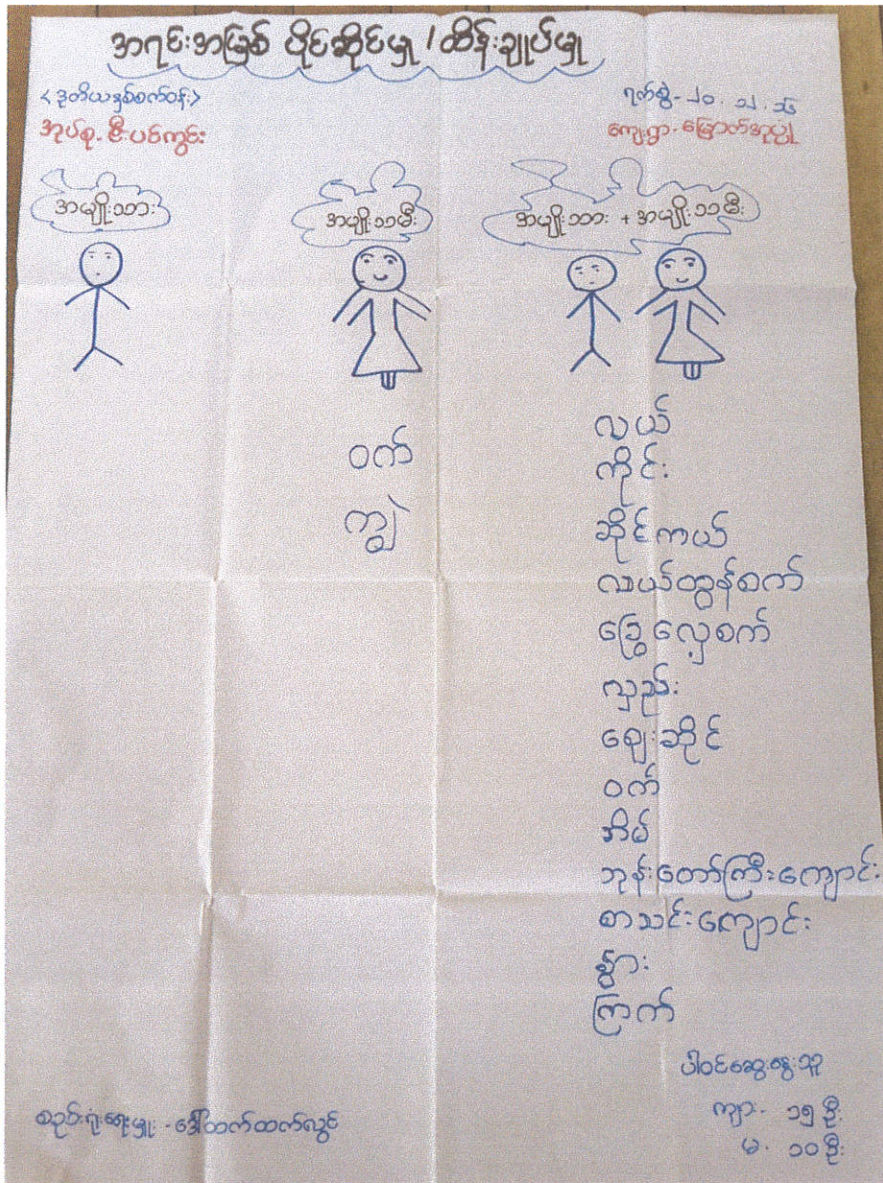 အရင်းအမြစ် ပိုင်ဆိုင်မှု / ထိန်းချုပ်မှု
<ဒုတိယနှစ်စက်ဝန်း>
ရက်စွဲ - ၂၀.၁၂.၁၆
အုပ်စု - စီးပင်ကွင်း
ကျေးရွာ - မြောက်
အမျိုးသား
အမျိုးသမီး
အမျိုးသား + အမျိုးသမီး
ဝက်
ကျွဲ
လယ်
ကိုင်း
ဆိုင်ကယ်
လယ်ထွန်စက်
ခြွေလှေ့စက်
လှည်း
ဈေးဆိုင်
ဝက်
အိမ်
ဘုန်းတော်ကြီးကျောင်း
စာသင်ကျောင်း
နွား
ကြက်
ပါဝင်ဆွေးနွေးသူ
ကျား - ၁၅ ဦး
မ - ၁၀ ဦး
စည်းရုံးရေးမှူး - ဒေါ်ထက်ထက်လွင်